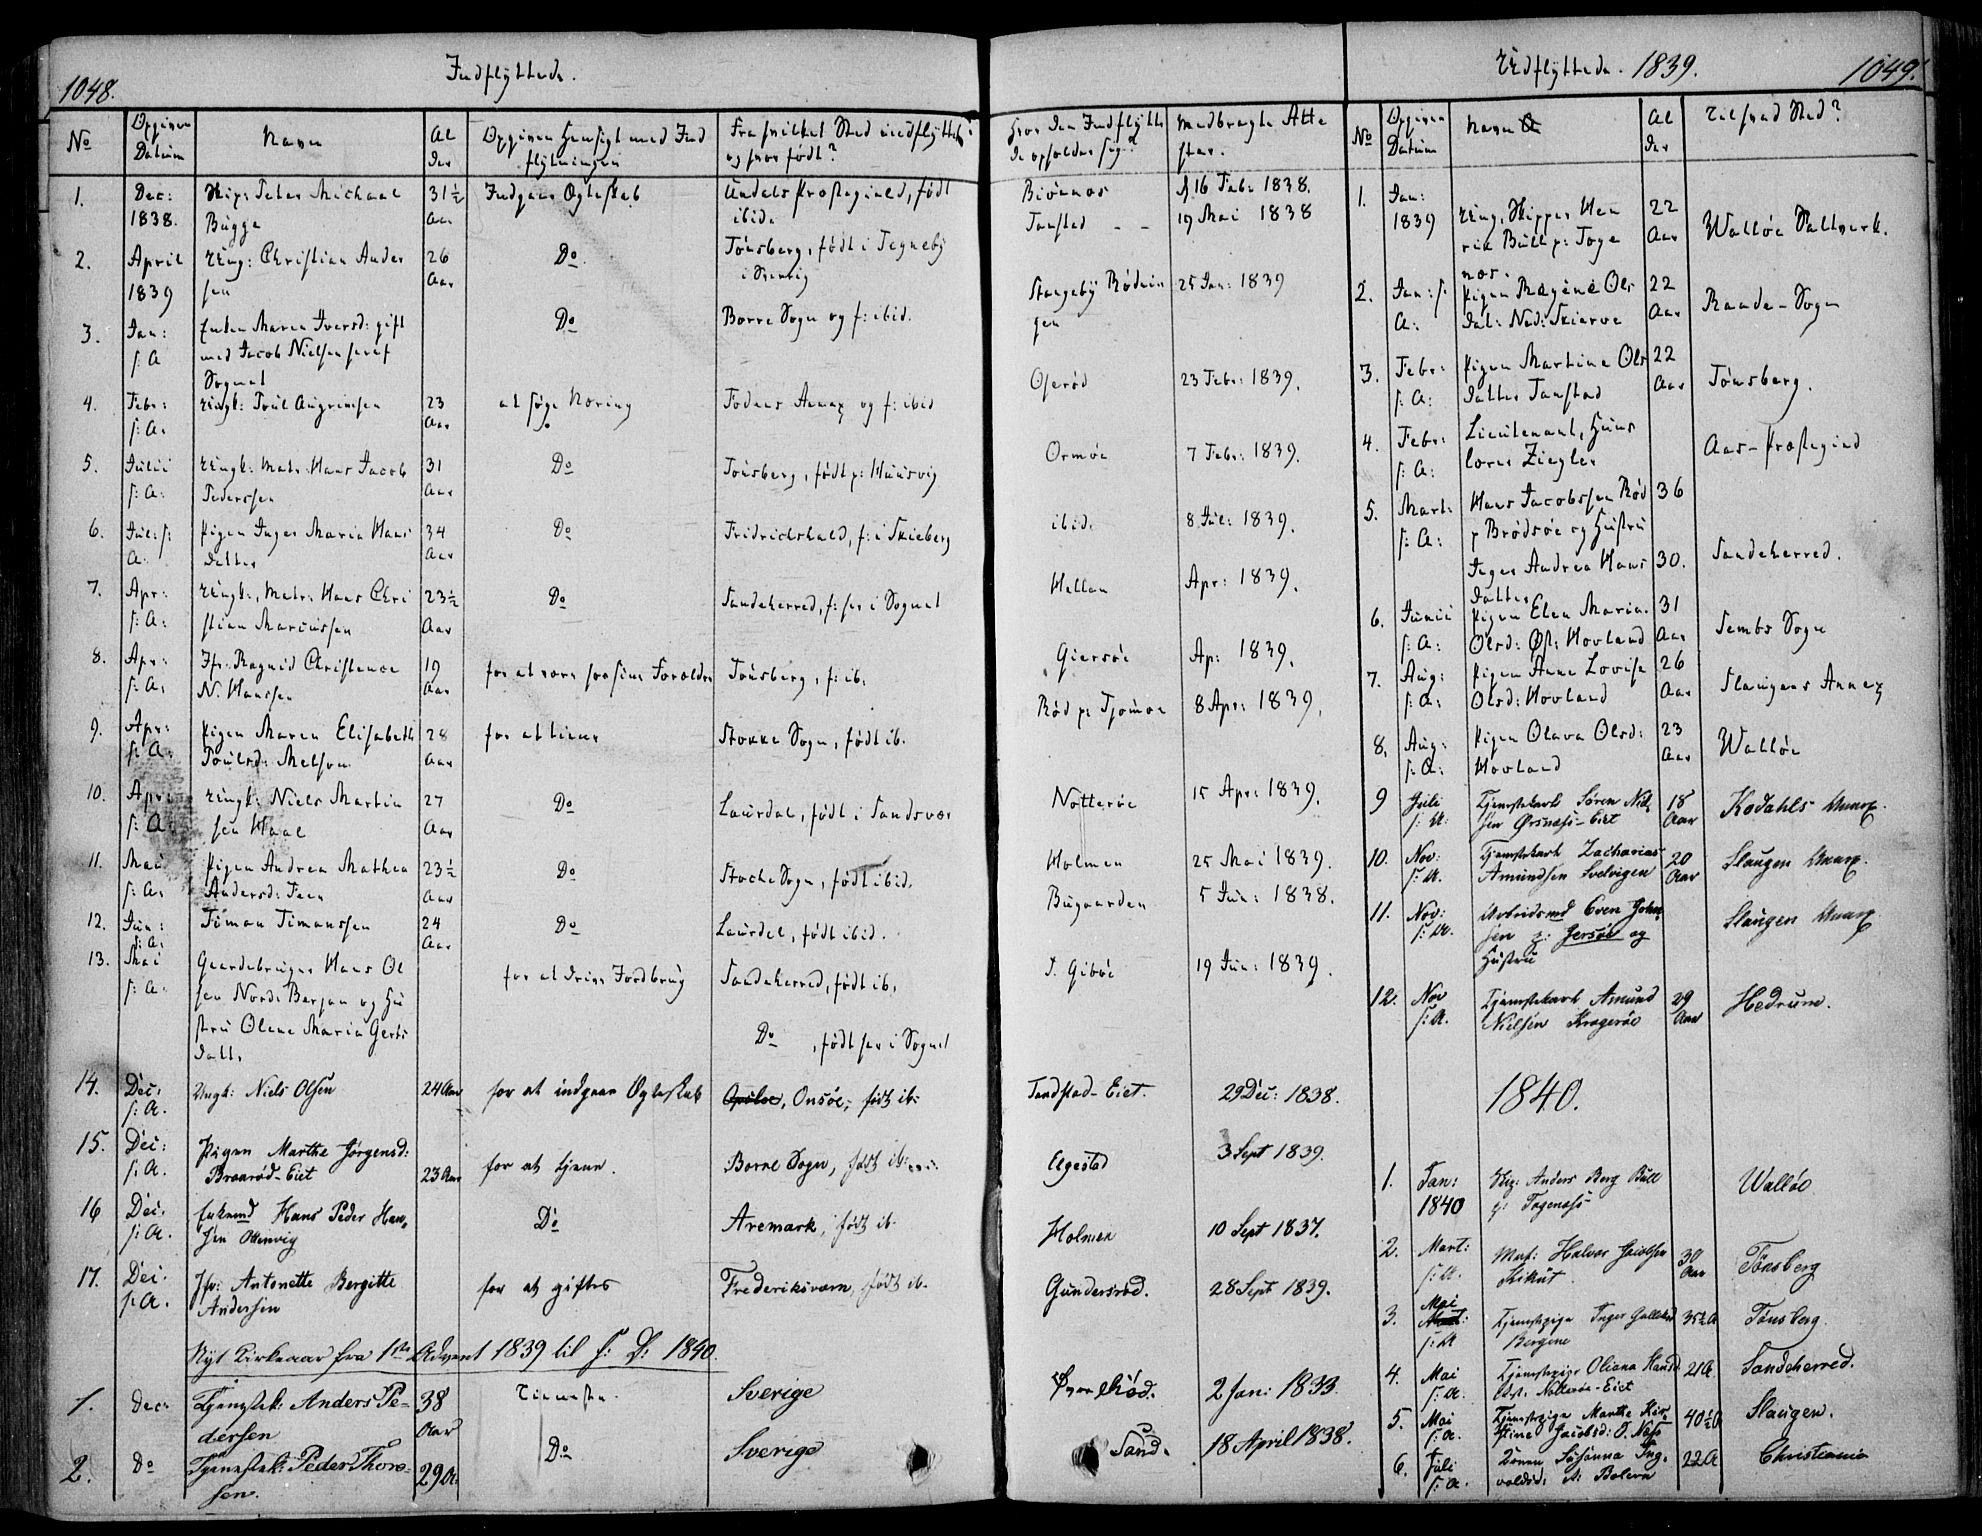 1048.
Indflyttede.
No
Opgiven Datum
Navn
Al der
Opgiven Hensigt med Ind flytningen
Fra hvilket Sted indflyttet og hvor født?
Hvor den Indflytte de opholder sig?
Medbragte Atte ster.
1. Dec: 1838. Skip: Peter Michael Bugge 31½ Aar Indgaae Ægteskab Præstegield, født ibid. 16 Feb: 1838.
Tanstad - - 19 Mai 1838
2. April 1839 Ung: Christian Ander sen 26 Aar Do Tønsberg, født i Tegneby i Sverrig 25 Jan: 1839
3. Jan: s: A Enken Maren Iversd: gift med Jacob Nielsen her af Sognet Do Borre Sogn og f: ibid. Oserød 23 Febr: 1839.
4. Febr: s: A. Ungk: Poul Angrimsen 23 Aar at søge Næring Fodens Annex og f: ibid Ormøe 7 Febr: 1839.
5. Julii s: A: Ungk: Matr: Hans Jacob Pederssen 31 Aar Do Tønsberg, født p: Huusvig ibid. 8 Jul: 1839.
6. Jul: s: A: Pigen Inger Maria Hans datter 34 Aar Do Fridrichshald, f: i Skieberg Mellan Apr: 1839.
7. Apr: s: A: Ungk:, Matr: Hans Chri stian Marcussen 23½ Aar Do Sandeherred, f: her i Sognet Giersøe Ap: 1839.
8. Apr: s: A. Jfr: Ragnid Christence N. Hanssen 19 Aar for at være hos sine Forældre Tønsberg, f: ib: Rød p: Tjømøe 8 Apr: 1839.
9. Apr: s: A: Pigen Maren Elisabeth Poulsd: Melsom 28 Aar for at tiene Stokke Sogn, født ib. Nøtterøe 15 Apr: 1839.
10. Apr: s: A: Ungk: Niels Martin sen Haae 27 Aar Do Laurdal, født i Sandsvær Holmen 25 Mai 1839.
11. Mai s: A. Pigen Andrea Mathea Andersd: Feen 23½ Aar Do Stocke Sogn, født ibid. Bugaarden 5 Jun: 1838.
12. Jun: s: A: Timan Timanssen 24 Aar Do Laurdal, født ibid.
13. Mai s: A. Gaardebruger Hans Ol sen Nordr Bergan og Hu stru Olene Maria Gerts datt. for at drive Jordbrug Sandeherred, født ib. Gibøe 19 Jun: 1839.
Do, født her i Sognet
14. Dec: s: A. Ungk: Niels Olsen 24 Aar for at indgaae Ægteskab Onsøe, født ib: Tandstad-Eiet. 29 Dec: 1838.
15. Dec: s: A. Pigen Marthe Jørgensd: Braarød-Eiet 23 Aar for at tjene. Borre Sogn, født ib: Elgestad 3 Sept 1839.
16 Dec: s: A. Enkemd Hans Peder Han, sen Ottenvig Do Aremark, født ib. Holmen 10 Sept 1837.
17. Dec: s: A. Jfr: Antonette Bergitte Andersen for at giftes Frederiksværn, født ib. Gundersrød. 28 Sept 1839.
Nyt Kirkeaar fra 1ste Advent 1839 til s: D: 1840.
1. Dec: Tjenestek: Anders Pe- dersen 38 Aar Tieneste. Sverige 2 Jan: 1833.
2. Do Tjenestek: Peder Thore- sen. 29 A. Do Sverige Sand. 18 April 1838.
Udflyttede. 1839.
1049.
No
Opgiven Datum
Navn
Al der
Til hvad Sted?
1. Jan: 1839 Ung. Skipper Hen rik Bull p: Toge næs. 22 Aar Walløe Saltverk.
2. Jan: s: A: Pigen Ragine Ols dat: Ned: Skierve 22 Aar Raade-Sogn
3. Febr: s: A: Pigen Martine Ols datter Tanstad 22 Aar Tønsberg.
4. Febr: s: A: Lieutenant, Ziegler Aas-Præstegield
5. Mart: s: A: Hans Jacobssen Rød p Brødsøe og Hustru 36
Inger Andrea Hans datter 30. Sandeherred.
6. Junii s: A: Pigen Elen Maria Olsd: Øst: Hovland 31 Aar Sembs Sogn
7. Aug: s: A: Pigen Anne Lovise Olsd: Hovland 26 Aar Slaugens Annex
8. Aug: s: A: Pigen Olava Olsd: Hovland 23 Aar Walløe
9 Juli s: A: Tjenestekarl Søren Niel, sen Ørsnæss-Eiet 18 Aar Kodahls Annex.
10. Nov: s: A. Tjenestekarl Zacharias Amundsen Solvigen 20 Aar Slaugen Annex.
11. Nov: s: A. Arbeidsmd Even John, sen p: Jersøe og Hustru Slaugen Annex
12. Nov s: A. Tjenestekarl Amund Nielsen Kragerøe 29 Aar Hedrum.
1840.
1. Jan: 1840 Skip: Anders Borg Bull p: Togenæss Walløe
2. Mart: s: A. Mat: Halvor Jacobsen Kikut. 30 Aar Tønsberg
3. Mai s: A Tjenestepige Inger Gulliksd Bergene 35½ A Tønsberg.
4. Mai s: A. Tjenestepige Oliana Hansd Vest: Nøtterøe-Eiet 21 A. Sandeherred.
5. Mai s: A. Tjenestepige Marthe Kir, stine Jacobsd: O. Næss 40½ A Slaugen.
6. Juli s: A. Konen Susanna Ing, valdsd: p: Bolærn 22 A Christiania